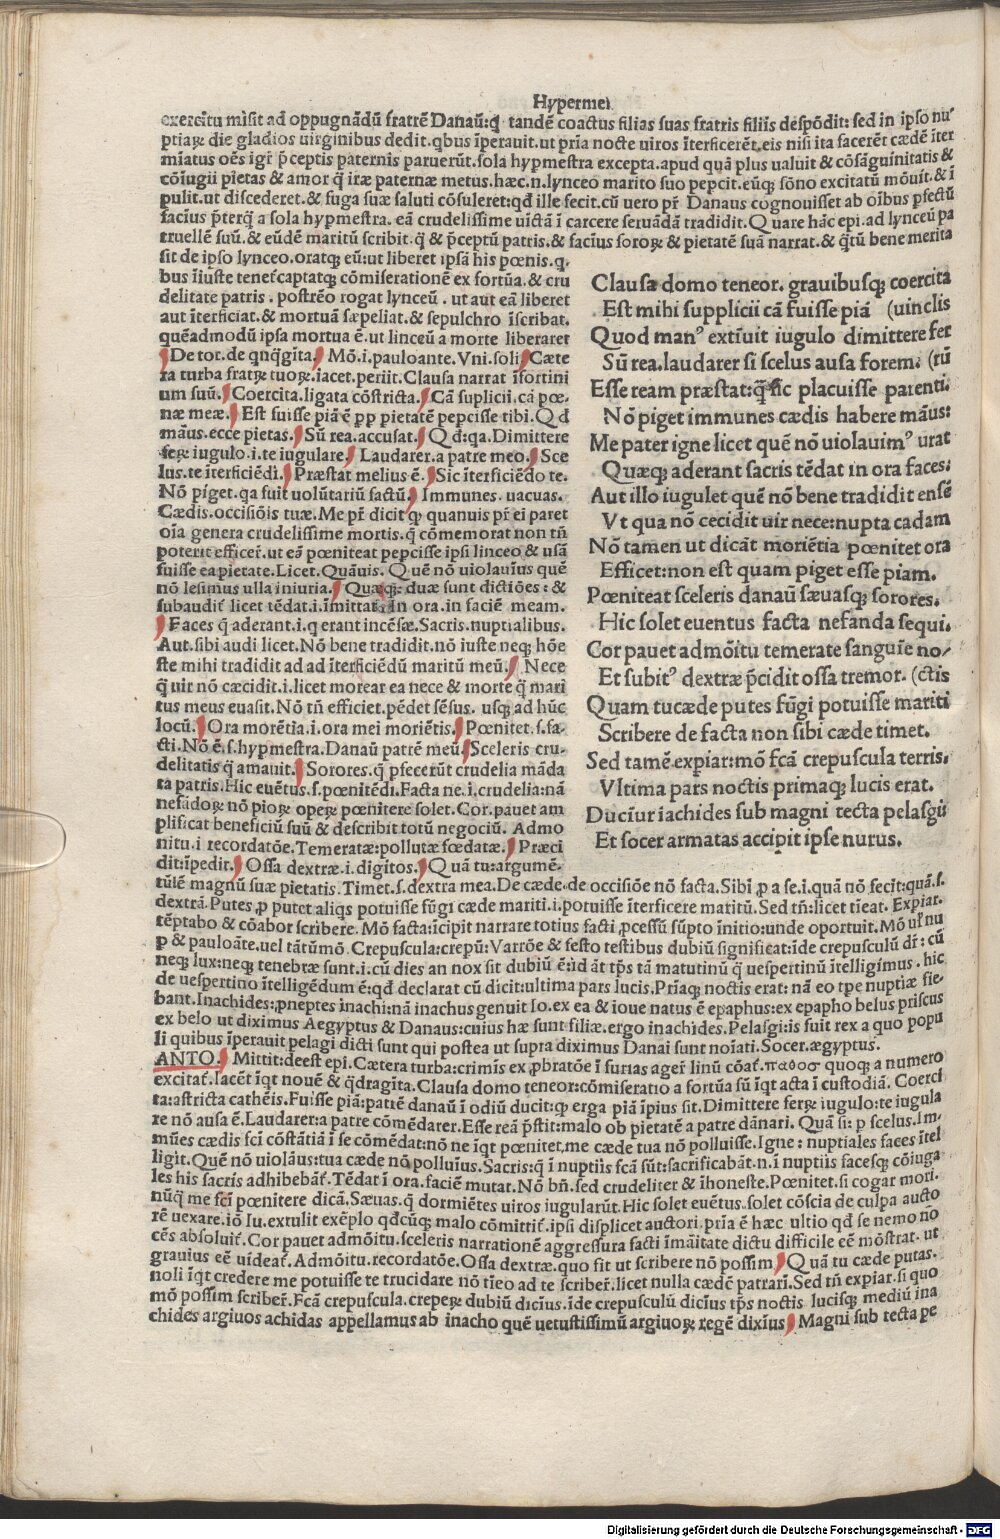 Hypermeſ
exercitu miſit ad oppugnādū fratrē Danaū:ꝗ tandē coactus filias ſuas fratris filiis deſpōdit: ſed in ipſo nu⸗
ptiaꝝ die gladios uirginibus dedit.qbus īperauit.ut pria nocte uiros īterficerēt.eis niſi ita facerēt cædē īter
mīatus oēs igr̄ p̄ceptis paternis paruerūt.ſola hypmeſtra excepta.apud quā plus ualuit & cōſāguinitatis &
cōiugii pietas & amor q̄ iræ paternæ metus.hæc.n.lynceo marito ſuo pepcit.eūq; ſōno excitatū mōuit.& ī
pulit.ut diſcederet.& fuga ſuæ ſaluti cōſuleret:qd̄ ille fecit.cū uero pr̄ Danaus cognouiſſet ab oībus pfectū
facīus p̄terq̄ a ſola hypmeſtra.eā crudeliſſime uīctā ī carcere ſeruādā tradidit.Quare hāc epi.ad lynceū pa
truellē ſuū.& eūdē maritū ſcribit.q̄ & p̄ceptū patris.& facīus ſoroꝝ & pietatē ſuā narrat.& q̄tū bene merita
ſit de ipſo lynceo.oratq; eū:ut liberet ipſā his pœnis.q.
bus īiuſte tenet̄ captatq; cōmiſerationē ex fortūa.& cru
delitate patris. poſtrēo rogat lynceū. ut aut eā liberet
aut īterficiat.& mortuā ſæpeliat.& ſepulchro īſcribat.
quēadmodū ipſa mortua ē.ut linceū a morte liberaret
De tot.de qnq̄gīta. Mō.i.pauloante.Vni.ſoli. Cæte
ra turba fratꝝ tuoꝝ.iacet.periit.Clauſa narrat īfortini
um ſuū. Coercita.ligata cōſtricta. Cā ſuplicii.cā pœ⸗
næ meæ. Eſt fuiſſe piā ē pp pietatē pepciſſe tibi.Qd̄
māus.ecce pietas. Sū rea.accuſat. Qd̄:qa.Dimittere
feꝝ iugulo.i.te iugulare. Laudarer.a patre meo. Sce
lus.te īterficiēdi. Præſtat melius ē. Sic īterficiēdo te.
Nō piget.qa fuit uolūtariū factū. Immunes.uacuas.
Cædis.occiſiōis tuæ.Me pr̄ dicit qꝫ quanuis pr̄ ei paret
oīa genera crudeliſſime mortis.q̄ cōmemorat non tn̄
poterit efficer̄.ut eā pœniteat pepciſſe ipſi linceo & uſā
fuiſſe ea pietate.Licet.Quāuis. Quē nō uiolauīus quē
nō leſimus ulla iniuria. Quæq;: duæ ſunt dictiōes: &
ſubaudit̄ licet tēdat.i.īmittat.In ora.in faciē meam.
Faces q̄ aderant.i.q erant incēſæ.Sacris.nuptialibus.
Aut.ſibi audi licet.Nō bene tradidit.nō iuſte neq; hōe
ſte mihi tradidit ad ad īterficiēdū maritū meū. Nece
q̄ uir nō cæcidit.i.licet morear ea nece & morte q̄ mari
tus meus euaſit.Nō tn̄ efficiet.pēdet ſēſus. uſq; ad hūc
locū. Ora morētia.i.ora mei moriētis. Pœnitet.ſ.fa⸗
cti.Nō ē.ſ.hypmeſtra.Danaū patrē meū. Sceleris cru⸗
delitatis q̄ amauit. Sorores.q̄ pfecerūt crudelia māda
ta patris.Hic euētus.ſ.pœnitēdi.Facta ne.i.crudelia:nā
nefādoꝝ nō pioꝝ opeꝝ pœnitere ſolet.Cor.pauet am
plificat beneficiū ſuū & deſcribit totū negociū. Admo
nitu.i recordatōe.Temeratæ:pollutæ fœdatæ. Præci
dit:īpedit. Oſſa dextræ.i.digitos. Quā tu:argumē⸗
Clauſæ domo teneor.grauibuſq; coercita
Eſt mihi ſupplicii cā fuiſſe piā (uinclis
Quod manꝰ extīuit iugulo dimittere fer
Sū rea.laudarer ſi ſcelus auſa forem. (rū
Eſſe ream præſtat:q̄ ſic placuiſſe parenti.
Nō piget immunes cædis habere māus:
Me pater igne licet quē nō uiolauimꝰ urat
Quæq; aderant ſacris tēdat in ora faces:
Aut illo iugulet quē nō bene tradidit enſē
Vt qua nō cecidit uir nece:nupta cadam
Nō tamen ut dicāt moriētia pœnitet ora
Efficet:non eſt quam piget eſſe piam.
Pœniteat ſceleris danaū ſæuaſq; ſorores.
Hic ſolet euentus facta nefanda ſequi.
Cor pauet admōitu temerate ſanguīe no⸗
Et ſubitꝰ dextræ p̄cidit oſſa tremor. (ctis
Quam tu cæde putes fūgi potuiſſe mariti
Scribere de facta non ſibi cæde timet.
Sed tamē expiar:mō fcā crepuſcula terris.
Vltima pars noctis primaq; lucis erat.
Ducīur īachides ſub magni tecta pelaſgii
Et ſocer armatas accipit ipſe nurus.
tūlē magnū ſuæ pietatis.Timet.ſ.dextra mea.De cæde.de occiſiōe nō facta.Sibi ꝓ a ſe.i.quā nō fecit:quā.ſ.
dextrā.Putes ꝓ putet aliqs potuiſſe fūgi cæde mariti.i.potuiſſe īterficere maritū.Sed tn̄:licet tīeat. Expiar.
tēptabo & cōabor ſcribere. Mō facta:īcipit narrare totius facti ꝓceſſū ſūpto īnitio:unde oportuit.Mō ul̄ nu
p & pauloāte.uel tātūmō.Crepuſcula:crepū:Varrōe & feſto teſtibus dubiū ſignificat:īde crepuſculū dr̄: cū
neq; lux:neq; tenebræ ſunt.i.cū dies an nox ſit dubiū ē:id āt tp̄s tā matutinū q̄ ueſpertinū ītelligimus. hic
de ueſpertino ītelligēdum ē:qd̄ declarat cū dicit:ultima pars lucis.Prīaq; noctis erat: nā eo tpe nuptiæ fie⸗
bant.Inachides:ꝓneptes inachi:nā inachus genuit Io.ex ea & ioue natus ē epaphus:ex epapho belus priſcus
ex belo ut diximus Aegyptus & Danaus:cuius hæ ſunt filiæ.ergo inachides.Pelaſgi:is fuit rex a quo popu
li quibus īperauit pelagi dicti ſunt qui poſtea ut ſupra diximus Danai ſunt noīati.Socer.ægyptus.
ANTO. Mittit:deeſt epi.Cætera turba:crimīs ex ꝓbratōe ī furias ager̄ linū cōat̄.παθοσ quoq; a numero
excitat̄.Iacēt īqt nouē & q̄dragīta.Clauſa domo teneor:cōmiſeratio a fortūa ſū īqt acta ī cuſtodiā. Coerci
ta:aſtricta cathēis.Fuiſſe piā:patrē danaū ī odiū ducit:qꝫ erga piā īpius ſit.Dimittere ferꝝ iugulo:te iugula
re nō auſa ē.Laudarer:a patre cōmēdarer.Eſſe reā p̄ſtit:malo ob pietatē a patre dānari. Quā ſi: p ſcelus.Im⸗
mūes cædis ſcī cōſtātiā ī ſe cōmēdat:nō ne īqt pœnitet.me cæde tua nō polluiſſe.Igne: nuptiales faces ītel
ligit.Quē nō uiolāus:tua cæde nō polluīus.Sacris:q̄ ī nuptīis fcā ſūt:ſacrificabāt.n.ī nuptīis faceſq; cōiuga
les his ſacris adhibebāt̄.Tēdat ī ora.faciē mutat.Nō bn̄.ſed crudeliter & īhoneſte.Pœnitet.ſi cogar mori.
nūq̄ me fcī pœnitere dicā.Sæuas.q̄ dormiētes uiros iugularūt.Hic ſolet euētus.ſolet cōſcia de culpa aucto
rē uexare.iō Iu.extulit exēplo qd̄cūq; malo cōmittit̄.ipſi diſplicet auctori.pria ē hæc ultio qd̄ ſe nemo nō
cēs abſoluit̄.Cor pauet admōitu.ſceleris narrationē aggreſſura facti īmāitate dictu difficile eē mōſtrat. ut
grauius eē uideat̄.Admōitu.recordatōe.Oſſa dextræ.quo ſit ut ſcribere nō poſſim. Quā tu cæde putas.
noli īqt credere me potuiſſe te trucidare nō tīeo ad te ſcriber̄.licet nulla cædē patrari.Sed tn̄ expiar.ſi quo
mō poſſim ſcriber̄.Fcā crepuſcula.crepeꝝ dubiū dicīus.īde crepuſculū dicīus tp̄s noctis luciſq; mediū īna
chides argiuos achidas appellamus ab inacho quē uetuſtiſſimū argiuoꝝ regē dixīus. Magni ſub tecta pe
Digitalisierung gefördert durch die Deutsche Forschungsgemeinschaft - DFG